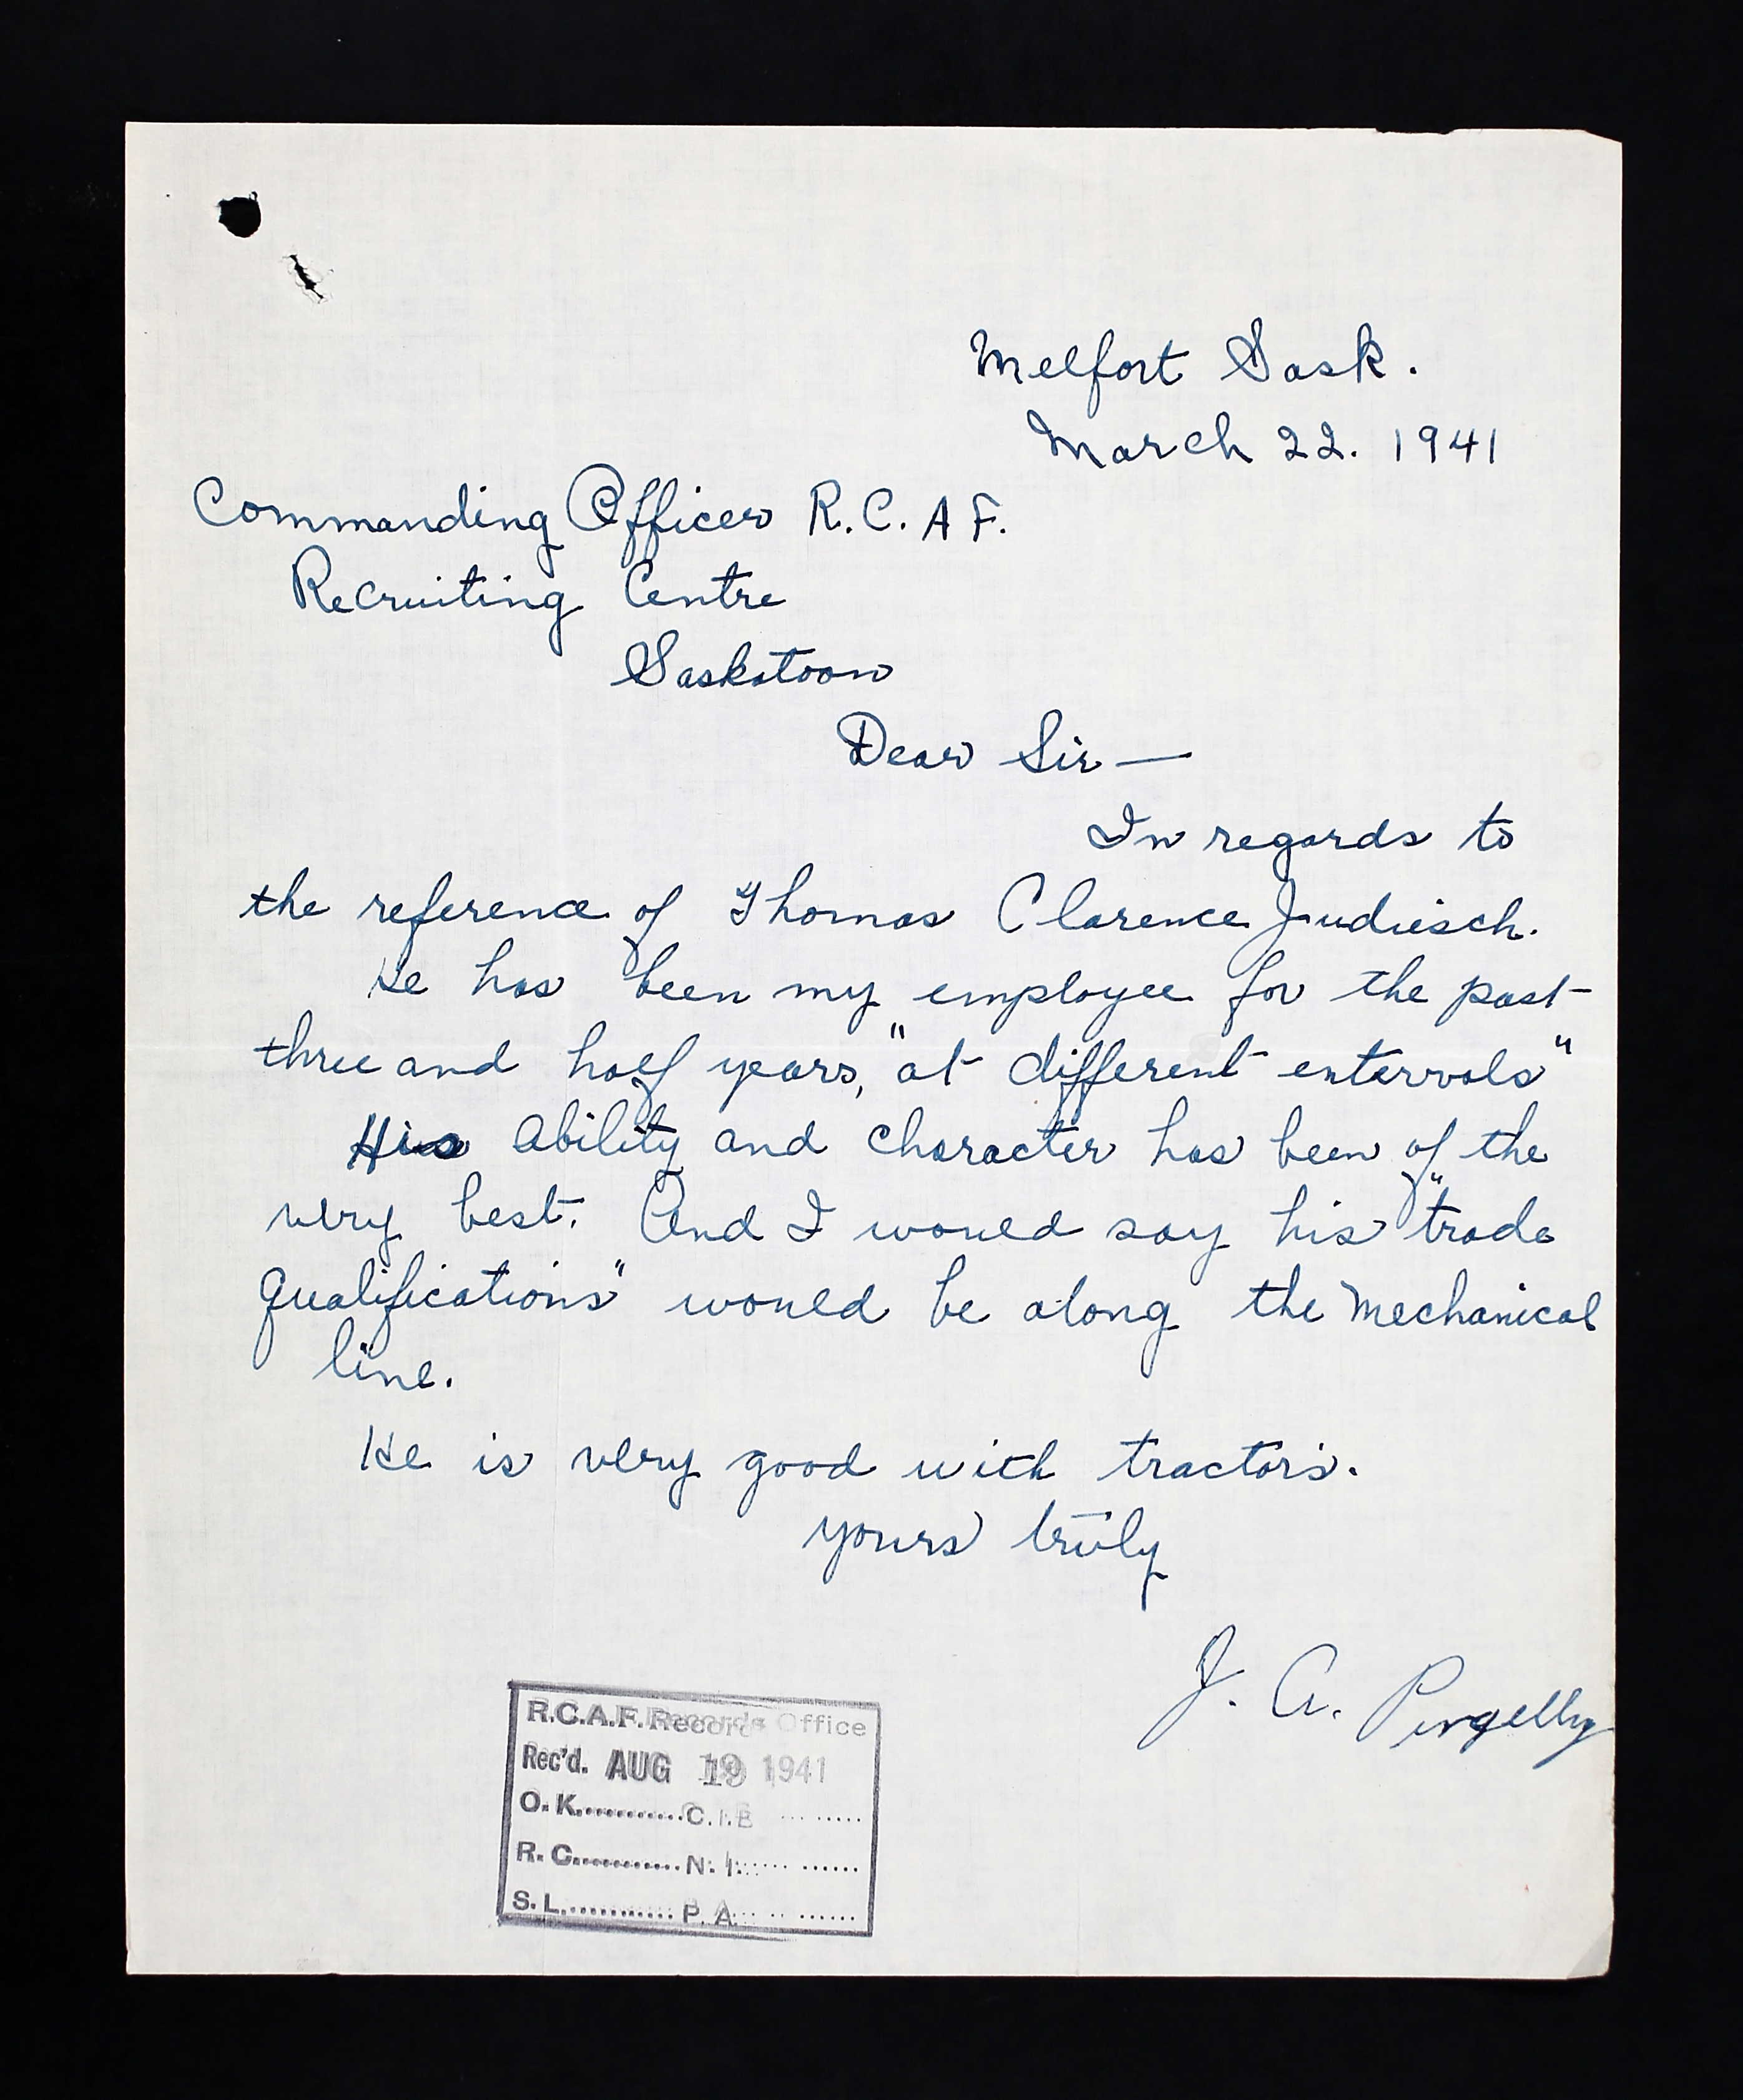 Melfort Sask.
March 22. 1941
Commanding Officer R.C.A F.
Recruiting Centre
Saskatoon
Dear Sir —
In regards to
the reference of Thomas Clarence Judiesch.
He has been my employee for the past
three and half years, "at different entervals"
His ability and character has been of the
very best. And I would say his "trade
qualifications" would be along the mechanical
line.
He is very good with tractors.
yours truly
J. A. Pengelly
R.C.A.F. Records Office
Rec'd. AUG 19 1941
O. K............C.I.B ... .....
R. C............ N. I. ...... ......
S. L............ P. A. ... ......